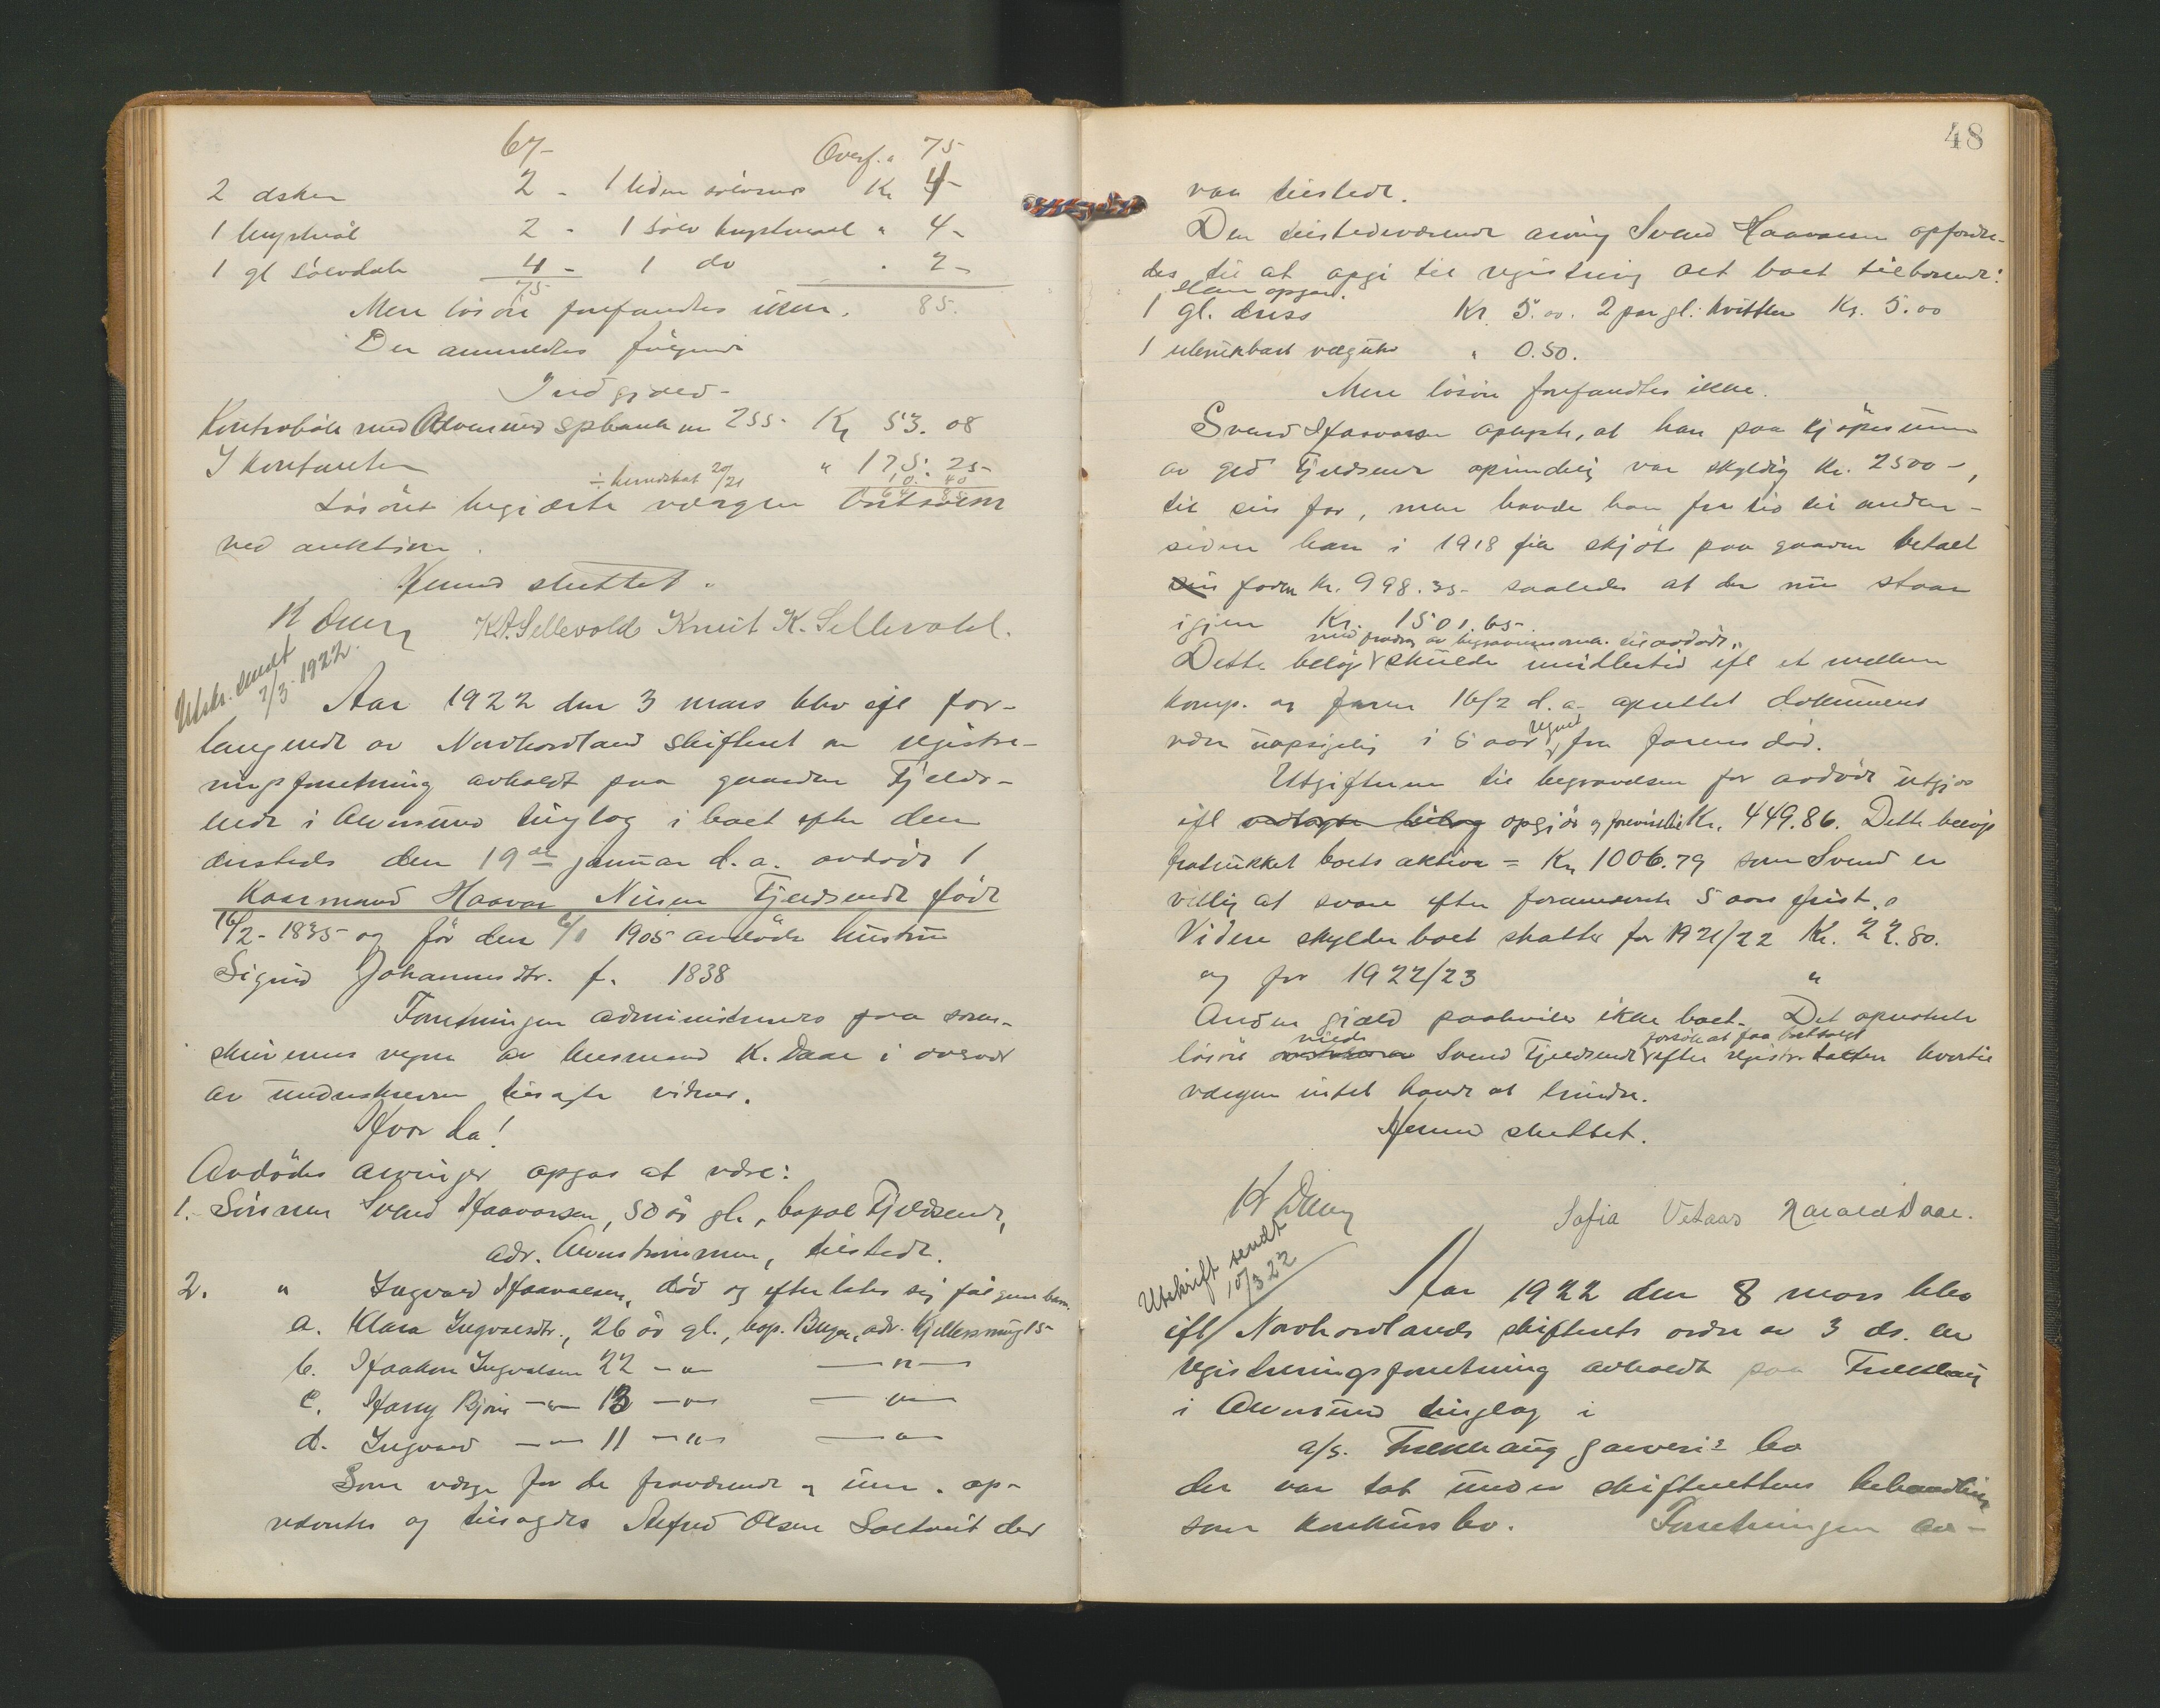 67- Overf. " 75-
2 asker 2 - 1 liden Kr 4-
1 2 - 1 sølv " 4-
1 gl sølvdaase 4 - 1 do " 2-
75 85.
Mere løsøre forefandtes ikke.
Der anmeldtes følgende
Indgjæld-
Kontrabok med Alversund spbank nr 255- Kr 53.08
I kontanter " 175.25-
÷ 20/21 10.40
Løsøret begjærte værgen bortsolgt
ved auktion.
Hermed sluttet.
K Daae K.A.Sellevold Knut K. Sellevold.
Utskr. sendt
7/3. 1922.
Aar 1922 den 3 mars blev efl for-
langende av Nordhordland skifteret en registre-
ringsforretning avholdt paa gaarden Fjelds-
ende i Alversund tinglag i boet efter den
dersteds den 19de januar d.a. avdøde
Kaarmand Haavar Nilsen Fjeldsende født
16/2-1835 og før den 6/1 1905 avdøde hustru
Sigrid Johannesdtr. f. 1838
Forretningen administreredes paa soren-
skriverens vegne av lensmand K. Daae i overvær
av underskrevne tilsagte vidner.
Hvor da!
Avdødes arvinger opgas at være:
1. Sønnen Svend Haavarsen, 50 år gl., bopæl Fjeldsende,
adr. Alverstrømmen, tilstede.
2. " Ingvard Haavarsen, død og efterlater sig følgende barn.
a. Klara Ingvalsdtr., 26 år gl., bop. Bergen, adr. 15-
b. Haakon Ingvalsen 22 -"- -"-
c. Harry Bjørn -"- 13 -"- -"-
d. Ingvard -"- 11 -"- -"-
Som værge for de fraværende og um. op-
nævntes og tilsagdes Alfred Olsen Soltveit der
48
var tilstede.
Den tilstedeværende arving Svend Haavarsen opfordre-
des til at opgi til registrering alt boet tilhørende:
1 gl. Kr. 5.00. 2 par gl. Kr. 5.00
1 ubrukbart vægur " 0.50.
Mere løsøre forefandtes ikke.
Svend Haavarsen oplyste, at han paa kjøpesummen
av grd Fjeldsende oprindelig var skyldig Kr. 2500-,
til sin far, men havde han fra tid til anden
siden han i 1918 fik skjøte paa gaarden betalt
sin faren Kr. 998.35- saaledes at der nu staar
igjen Kr. 1501.65-
med fradrag av begravelsen til avdøde
Dette beløp skulde imidlertid efl et mellem
komp. og faren 16/2 d.a. oprettet dokument
være uopsigelig i 5 aar regnet fra farens død.
Utgifterne til begravelsen for avdøde utgjør
efl vedlagte bilag opgjør og forevist Kr. 449.86. Dette beløp
fratrukket boets aktiva = Kr. 1006.79 som Svend er
villig at svare efter foranævnte 5 aars frist.
Videre skylder boet skatter for 1921/22 Kr. 22.80.
og for 1922/23 "
Anden gjæld paahviler ikke boet. Det opnævnte
løsøre vilde Svend Fjeldsende forsøke at faa bortsolgt efter registr.taksten hvortil
værgen intet havde at hindre.
Hermed sluttet.
K Daae Sofia Vetaas Harald Daae.
Utskrift sendt
10/3 22
Aar 1922 den 8 mars blev
efl Nordhordlands skifterets ordre av 3 ds. en
registreringsforretning avholdt paa Frekhaug
i Alversund tinglag i
a/s. Frekhaug garveri's bo
der var tat under skifterettens behandling
som konkursbo. Forretningen av-